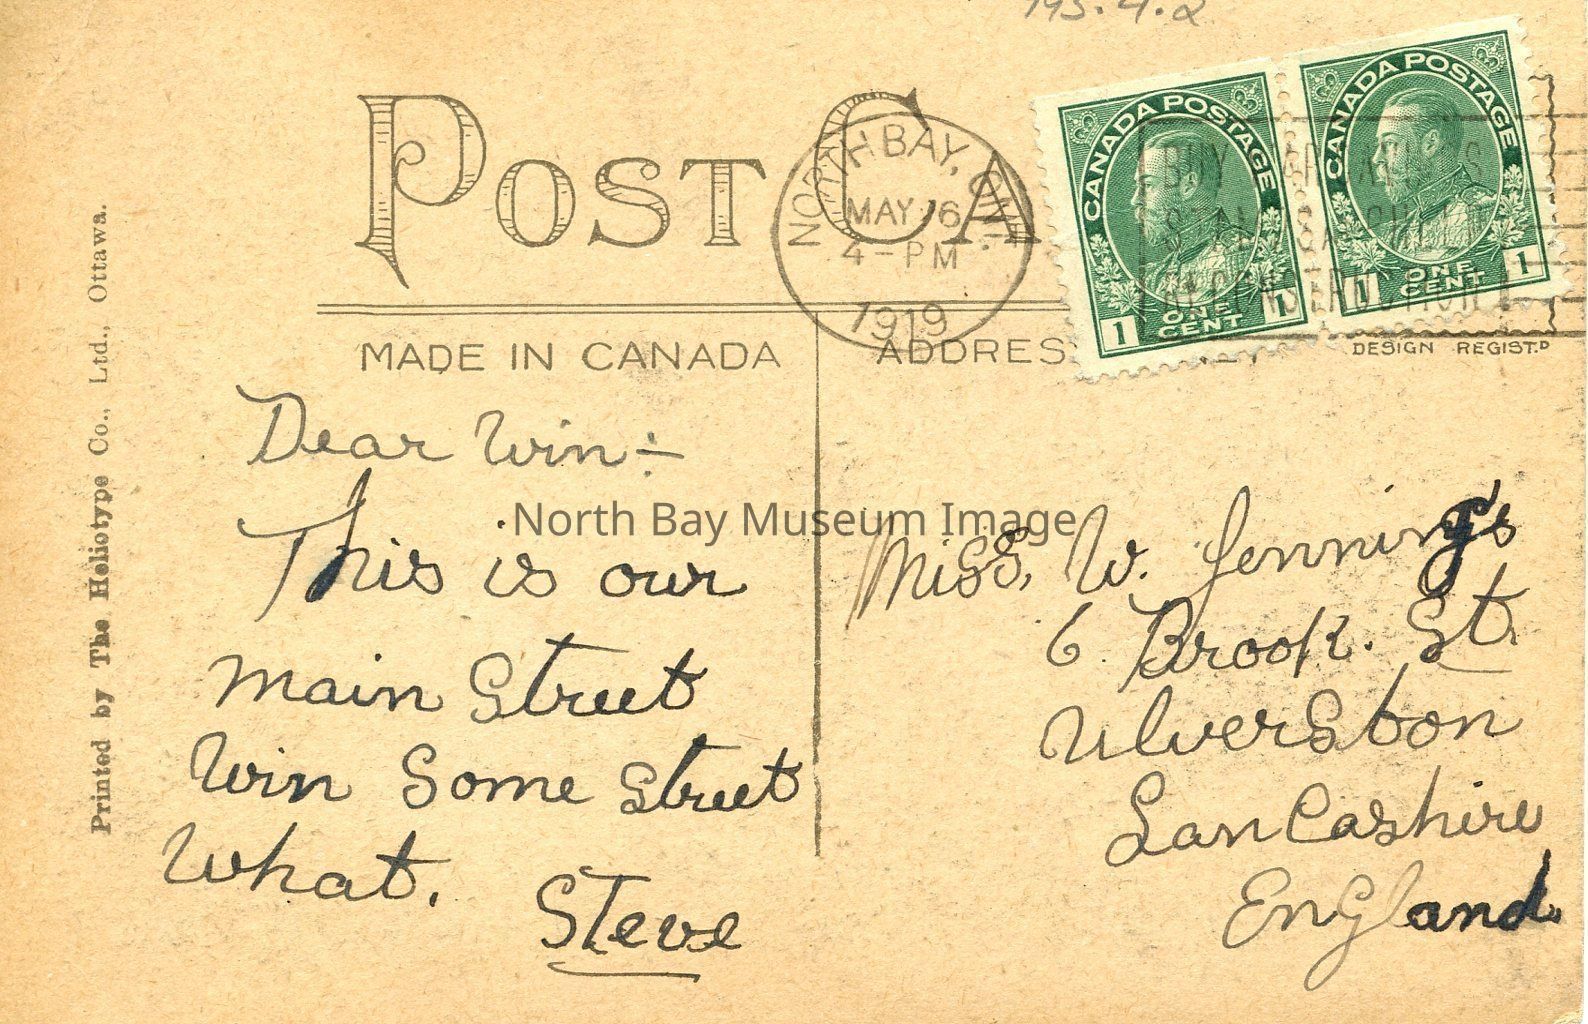 193.4.2
POST CA
NORTH BAY, ONT.
MAY 16
4 - PM
1919
CANADA POSTAGE
1 ONE CENT 1
CANADA POSTAGE
1 ONE CENT 1
BUY
MADE IN CANADA
ADDRES
DESIGN REGIST.D
Printed by The Heliotype Co., Ltd., Ottawa.
Dear Win÷
This is our
main Street
Win Some Street
What.
Steve
North Bay Museum Image
Miss. W. Jennings
6. Brook. St.
UlverSton
LanCashire
EnGland.